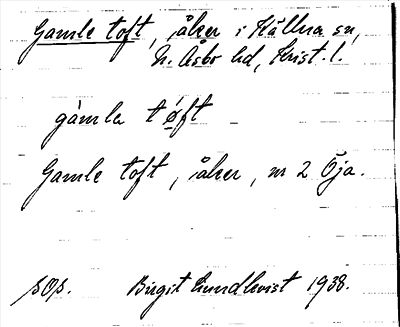 Gamle toft, åker i Källna sn,
N. Åsbo hd, Krist. l.
gàmla tǿft
Gamle toft, åker, nr 2 Öja.
sOp. Birgit Lundkvist 1938.